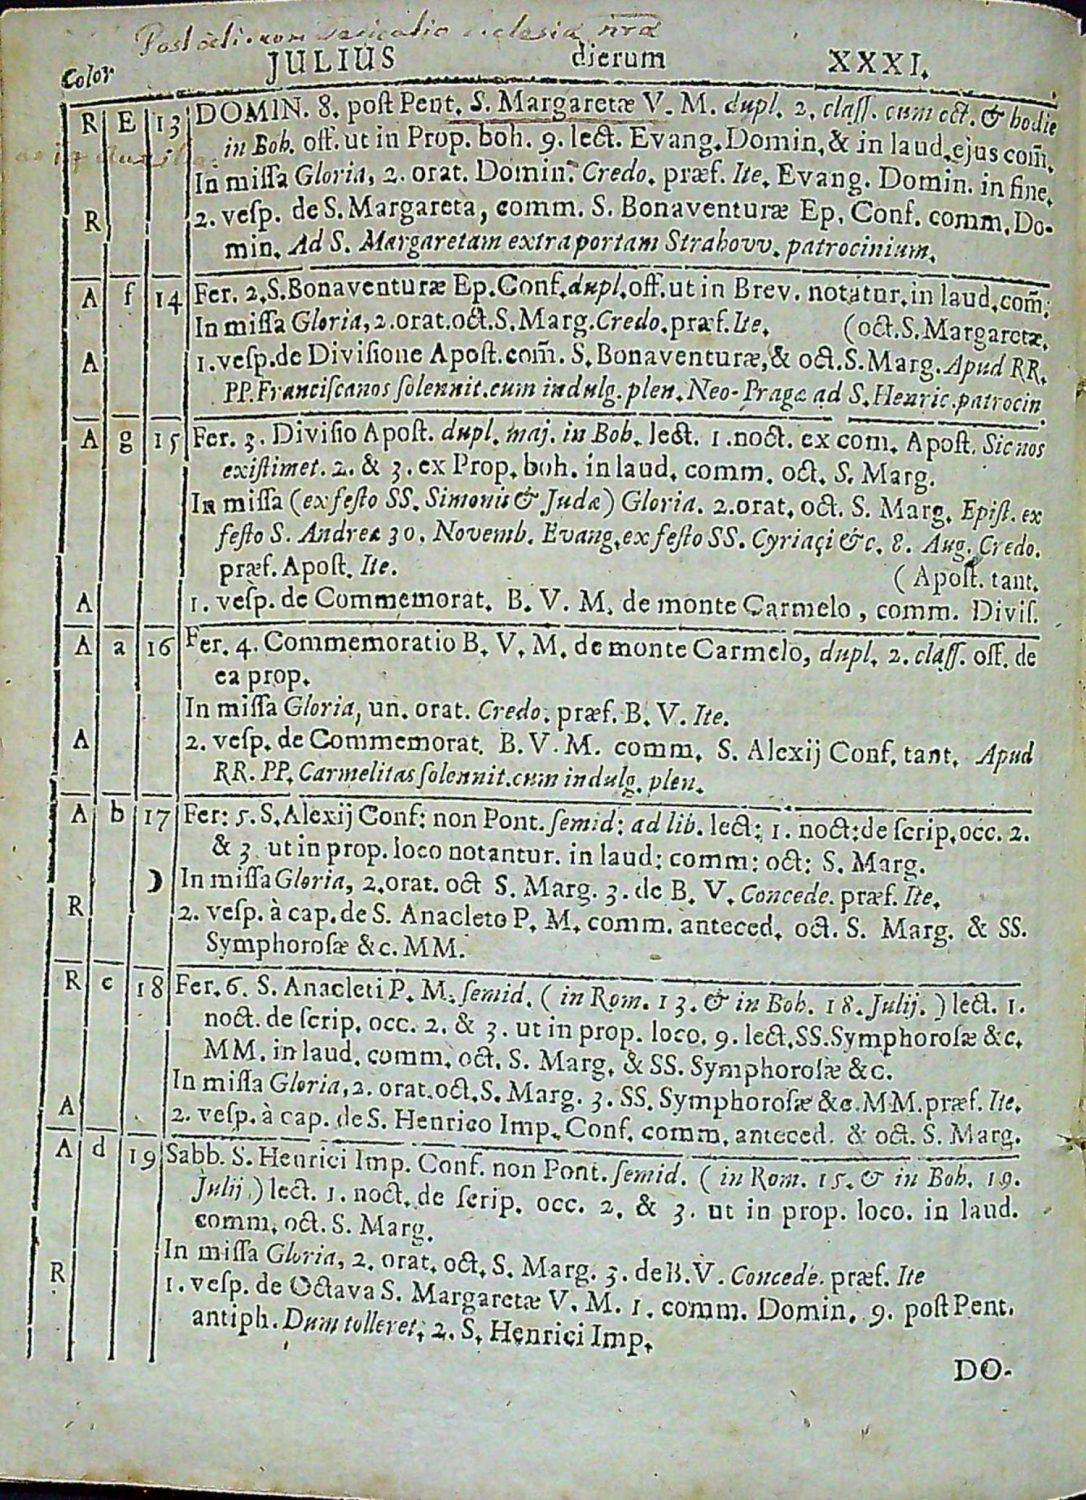 Post octi. ecclesia nrâ
Color JULIUS dierum XXXI.
R E 13 DOMIN. 8. poſt Pent. S. Margaretæ V. M. dupl. 2. claſſ. cum oct. & hodie
in Boh. off. ut in Prop. boh. 9. lect. Evang. Domin, & in laud. ejus com̃.
In miſſa Gloria, 2. orat. Domin. Credo. præf. Ite. Evang. Domin. in fine.
R 2. veſp. de S. Margareta, comm. S. Bonaventuræ Ep. Conf. comm. Do-
min. Ad S. Margaretam extra portam Strahovv. patrocinium.
A f 14 Fer. 2. S. Bonaventuræ Ep. Conf. dupl. off. ut in Brev. notatur. in laud. com̃:
In miſſa Gloria, 2. orat. oct. S. Marg. Credo. præf. Ite. (oct. S. Margaretæ.
A 1. veſp. de Diviſione Apoſt. com̃. S. Bonaventuræ, & oct. S. Marg. Apud RR.
PP. Franciſcanos ſolennit. cum indulg. plen. Neo-Pragæ ad S. Henric. patrocin
A g 15 Fer. 3. Diviſio Apoſt. dupl. maj. in Boh. lect. 1. noct. ex com. Apoſt. Sic nos
exiſtimet. 2. & 3. ex Prop. boh. in laud. comm. oct. S. Marg.
In miſſa (ex feſto SS. Simonis & Judæ) Gloria. 2. orat. oct. S. Marg. Epiſt. ex
feſto S. Andreæ 30. Novemb. Evang. ex feſto SS. Cyriaçi &c. 8. Aug. Credo.
præf. Apoſt. Ite. (Apoſt. tant.
A 1. veſp. de Commemorat. B. V. M. de monte Carmelo, comm. Diviſ.
A a 16 Fer. 4. Commemoratio B. V. M. de monte Carmelo, dupl. 2. claſſ. off. de
ea prop.
In miſſa Gloria, un. orat. Credo. præf. B. V. Ite.
A 2. veſp. de Commemorat. B. V. M. comm. S. Alexij Conf. tant. Apud
RR. PP. Carmelitas ſolennit. cum indulg. plen.
A b 17 Fer: 5. S. Alexij Conf: non Pont. ſemid: ad lib. lect: 1. noct: de ſcrip. occ. 2.
& 3. ut in prop. loco notantur. in laud: comm: oct: S. Marg.
☽ In miſſa Gloria, 2. orat. oct S. Marg. 3. de B. V. Concede. præf. Ite.
R 2. veſp. à cap. de S. Anacleto P. M. comm. anteced. oct. S. Marg. & SS.
Symphoroſæ &c. MM.
R c 18 Fer. 6. S. Anacleti P. M. ſemid. (in Rom. 13. & in Boh. 18. Julij.) lect. 1.
noct. de ſcrip. occ. 2. & 3. ut in prop. loco. 9. lect. SS. Symphoroſæ &c.
MM. in laud. comm. oct. S. Marg. & SS. Symphoroſæ &c.
In miſſa Gloria, 2. orat. oct. S. Marg. 3. SS. Symphoroſæ &c. MM. præf. Ite.
A 2. veſp. à cap. de S. Henrico Imp. Conf. comm. anteced. & oct. S. Marg.
A d 19 Sabb. S. Henrici Imp. Conf. non Pont. ſemid. (in Rom. 15. & in Boh. 19.
Julij.) lect. 1. noct. de ſcrip. occ. 2. & 3. ut in prop. loco. in laud.
comm. oct. S. Marg.
In miſſa Gloria, 2. orat. oct. S. Marg. 3. de B. V. Concede. præf. Ite
R 1. veſp. de Octava S. Margaretæ V. M. 1. comm. Domin. 9. poſt Pent.
antiph. Dum tolleret. 2. S. Henrici Imp.
DO-